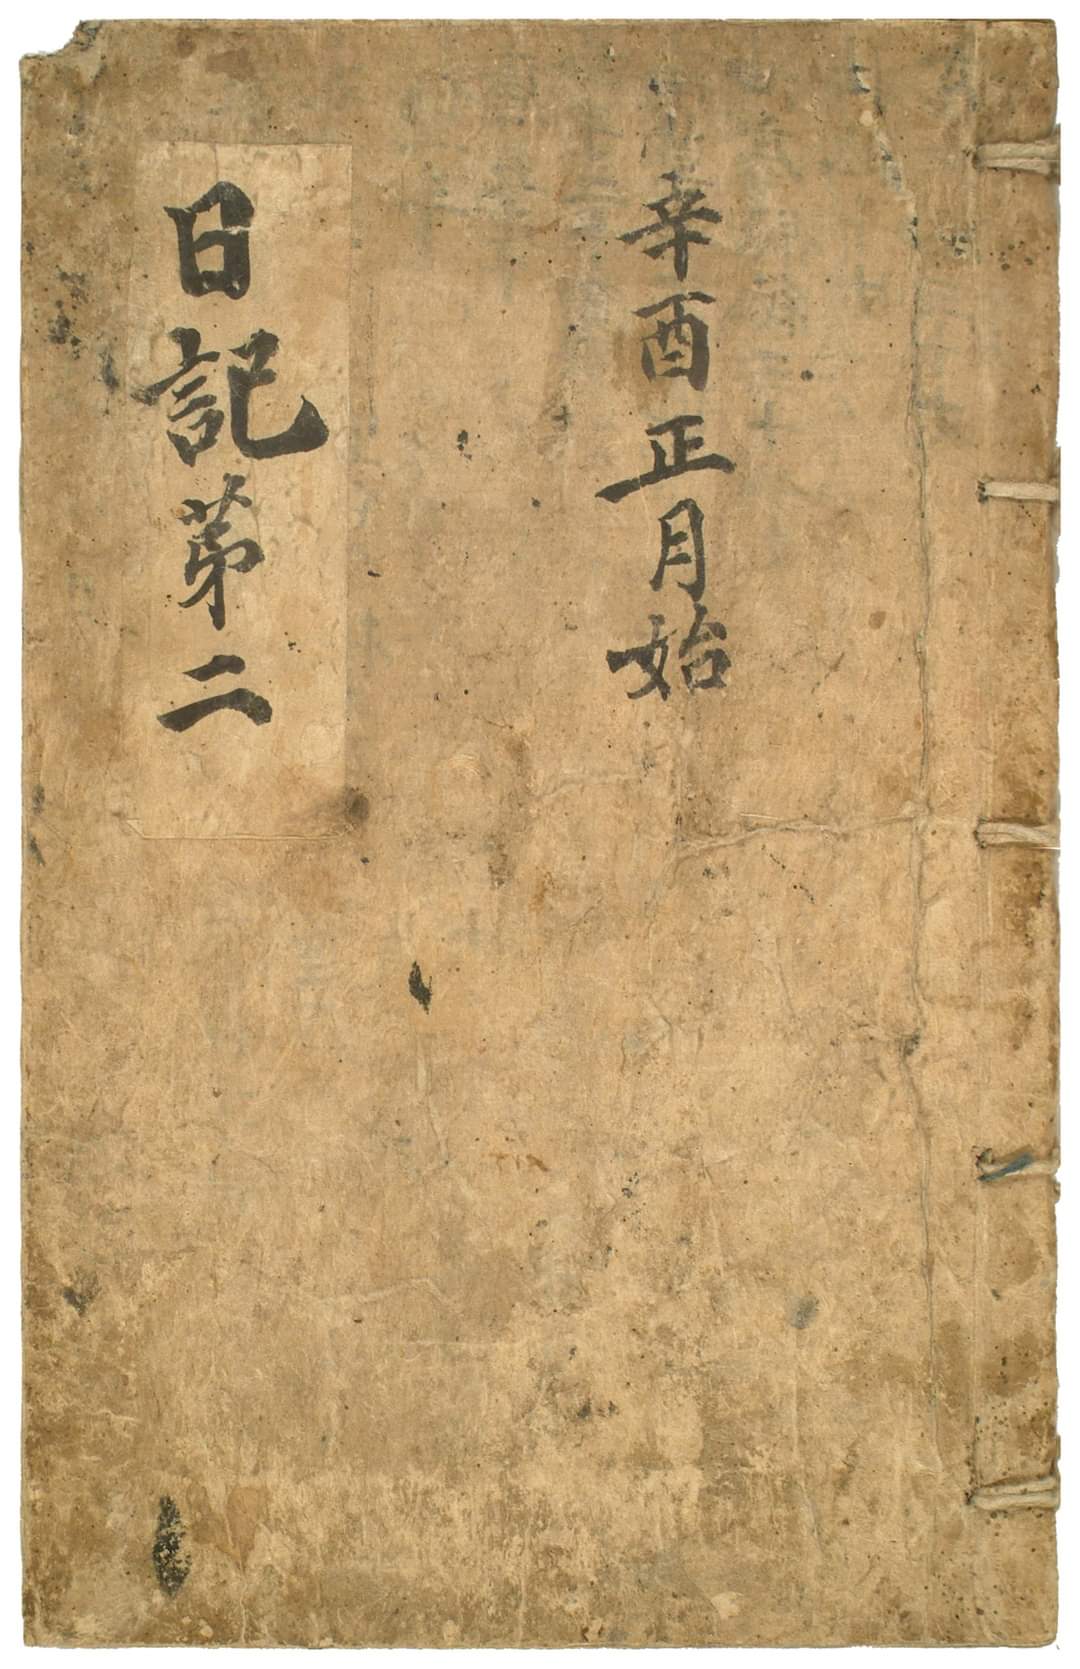 辛酉正月始
日記苐二